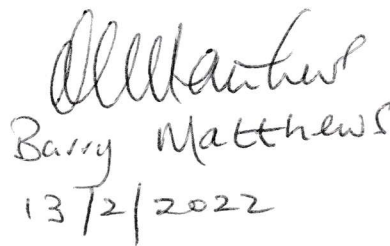 Barry Matthews
13/2/2022